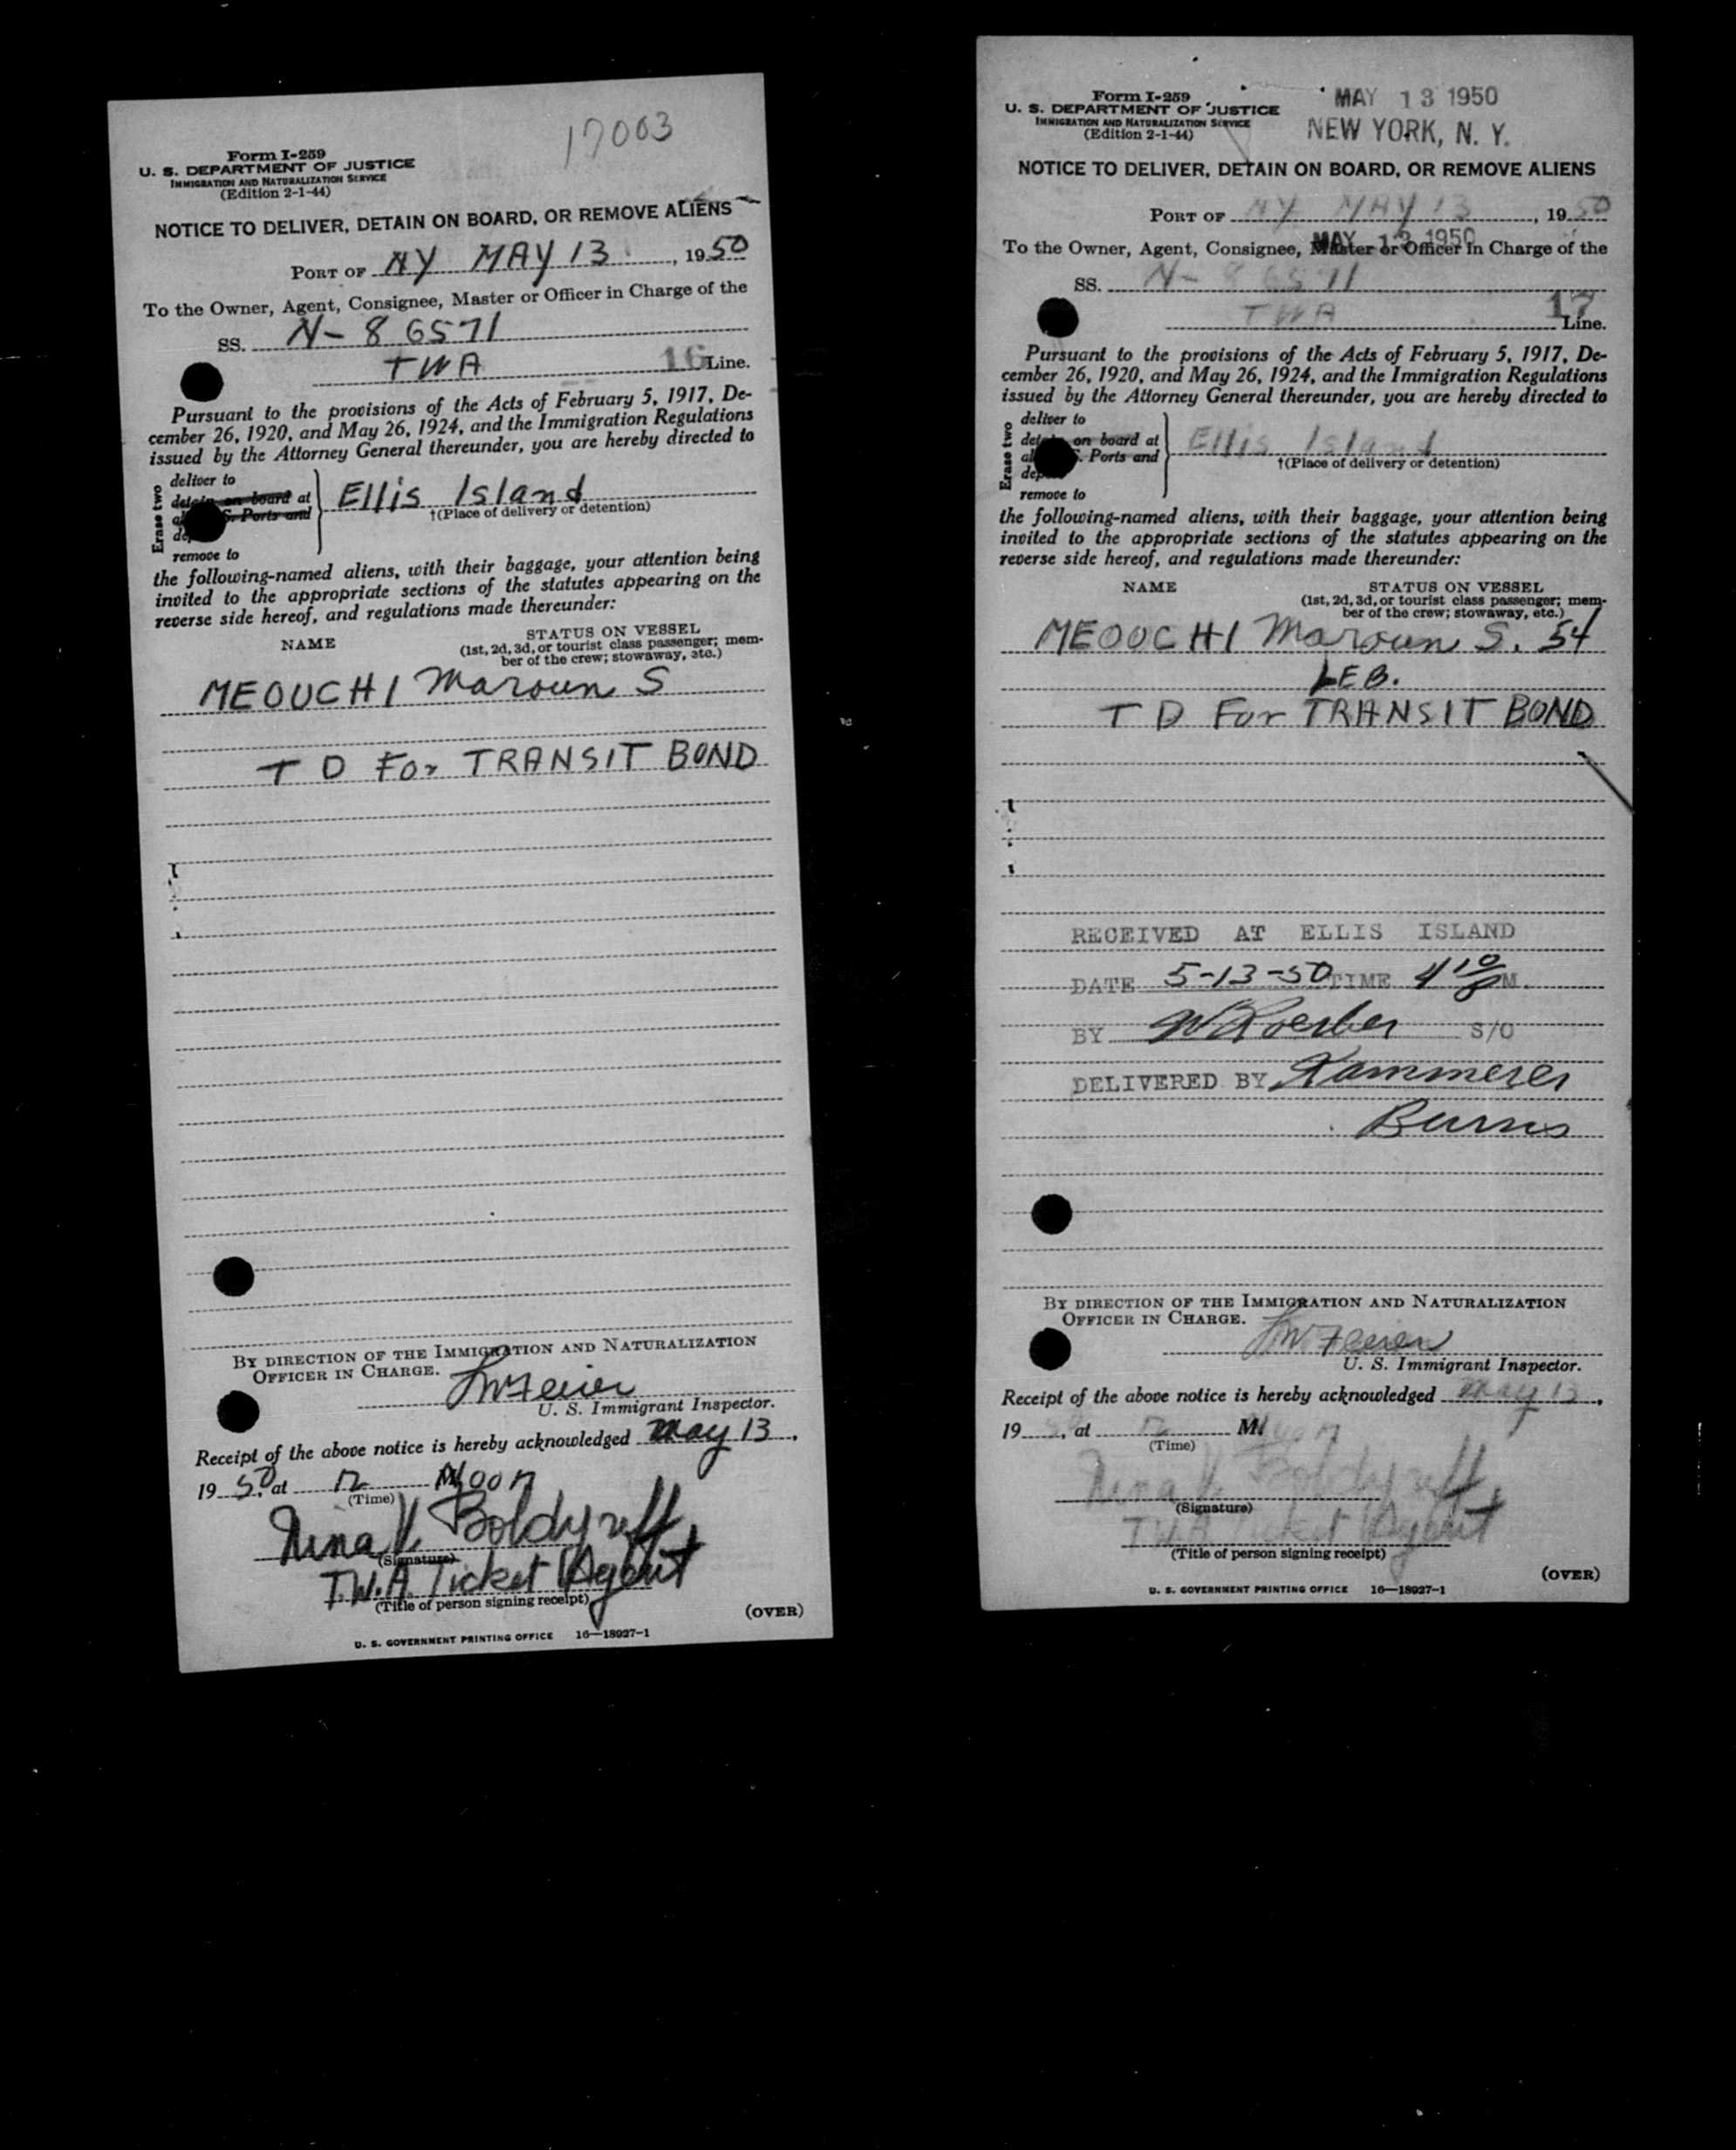 17003
Form I-259
U. S. DEPARTMENT OF JUSTICE
IMMIGRATION AND NATURALIZATION SERVICE
(Edition 2-1-44)
NOTICE TO DELIVER, DETAIN ON BOARD, OR REMOVE ALIENS
PORT OF NY MAY 13, 1950
To the Owner, Agent, Consignee, Master or Officer in Charge of the
SS. N-86571
TWA 16 Line.
Pursuant to the provisions of the Acts of February 5, 1917, De-
cember 26, 1920, and May 26, 1924, and the Immigration Regulations
issued by the Attorney General thereunder, you are hereby directed to
Erase two
deliver to
detain on board at
S. Ports and
remove to
Ellis Island
†(Place of delivery or detention)
the following-named aliens, with their baggage, your attention being
invited to the appropriate sections of the statutes appearing on the
reverse side hereof, and regulations made thereunder:
NAME STATUS ON VESSEL
(1st, 2d, 3d, or tourist class passenger; mem-
ber of the crew; stowaway, etc.)
MEOUCHI Maroun S
T D For TRANSIT BOND
BY DIRECTION OF THE IMMIGRATION AND NATURALIZATION
OFFICER IN CHARGE.
U. S. Immigrant Inspector.
Receipt of the above notice is hereby acknowledged May 13,
1950, at 12 Noon
(Time)
Nina V. Boldyreff
(Signature)
T.W.A. Ticket Agent
(Title of person signing receipt)
(OVER)
U. S. GOVERNMENT PRINTING OFFICE 16—18927-1
Form I-259
U. S. DEPARTMENT OF JUSTICE
IMMIGRATION AND NATURALIZATION SERVICE
(Edition 2-1-44)
MAY 13 1950
NEW YORK, N. Y.
NOTICE TO DELIVER, DETAIN ON BOARD, OR REMOVE ALIENS
PORT OF NY MAY 13, 1950
MAY 13 1950
To the Owner, Agent, Consignee, Master or Officer in Charge of the
SS. N-86571
TWA 17 Line.
Pursuant to the provisions of the Acts of February 5, 1917, De-
cember 26, 1920, and May 26, 1924, and the Immigration Regulations
issued by the Attorney General thereunder, you are hereby directed to
Erase two
deliver to
detain on board at
S. Ports and
remove to
Ellis Island
†(Place of delivery or detention)
the following-named aliens, with their baggage, your attention being
invited to the appropriate sections of the statutes appearing on the
reverse side hereof, and regulations made thereunder:
NAME STATUS ON VESSEL
(1st, 2d, 3d, or tourist class passenger; mem-
ber of the crew; stowaway, etc.)
MEOUCHI Maroun S. 54
LEB.
T D For TRANSIT BOND
RECEIVED AT ELLIS ISLAND
DATE 5-13-50 TIME 4 10 P M.
BY S/O
DELIVERED BY Kammerer
Burns
BY DIRECTION OF THE IMMIGRATION AND NATURALIZATION
OFFICER IN CHARGE.
U. S. Immigrant Inspector.
Receipt of the above notice is hereby acknowledged May 13,
1950, at 12 Noon
(Time)
Nina V. Boldyreff
(Signature)
T.W.A. Ticket Agent
(Title of person signing receipt)
(OVER)
U. S. GOVERNMENT PRINTING OFFICE 16—18927-1